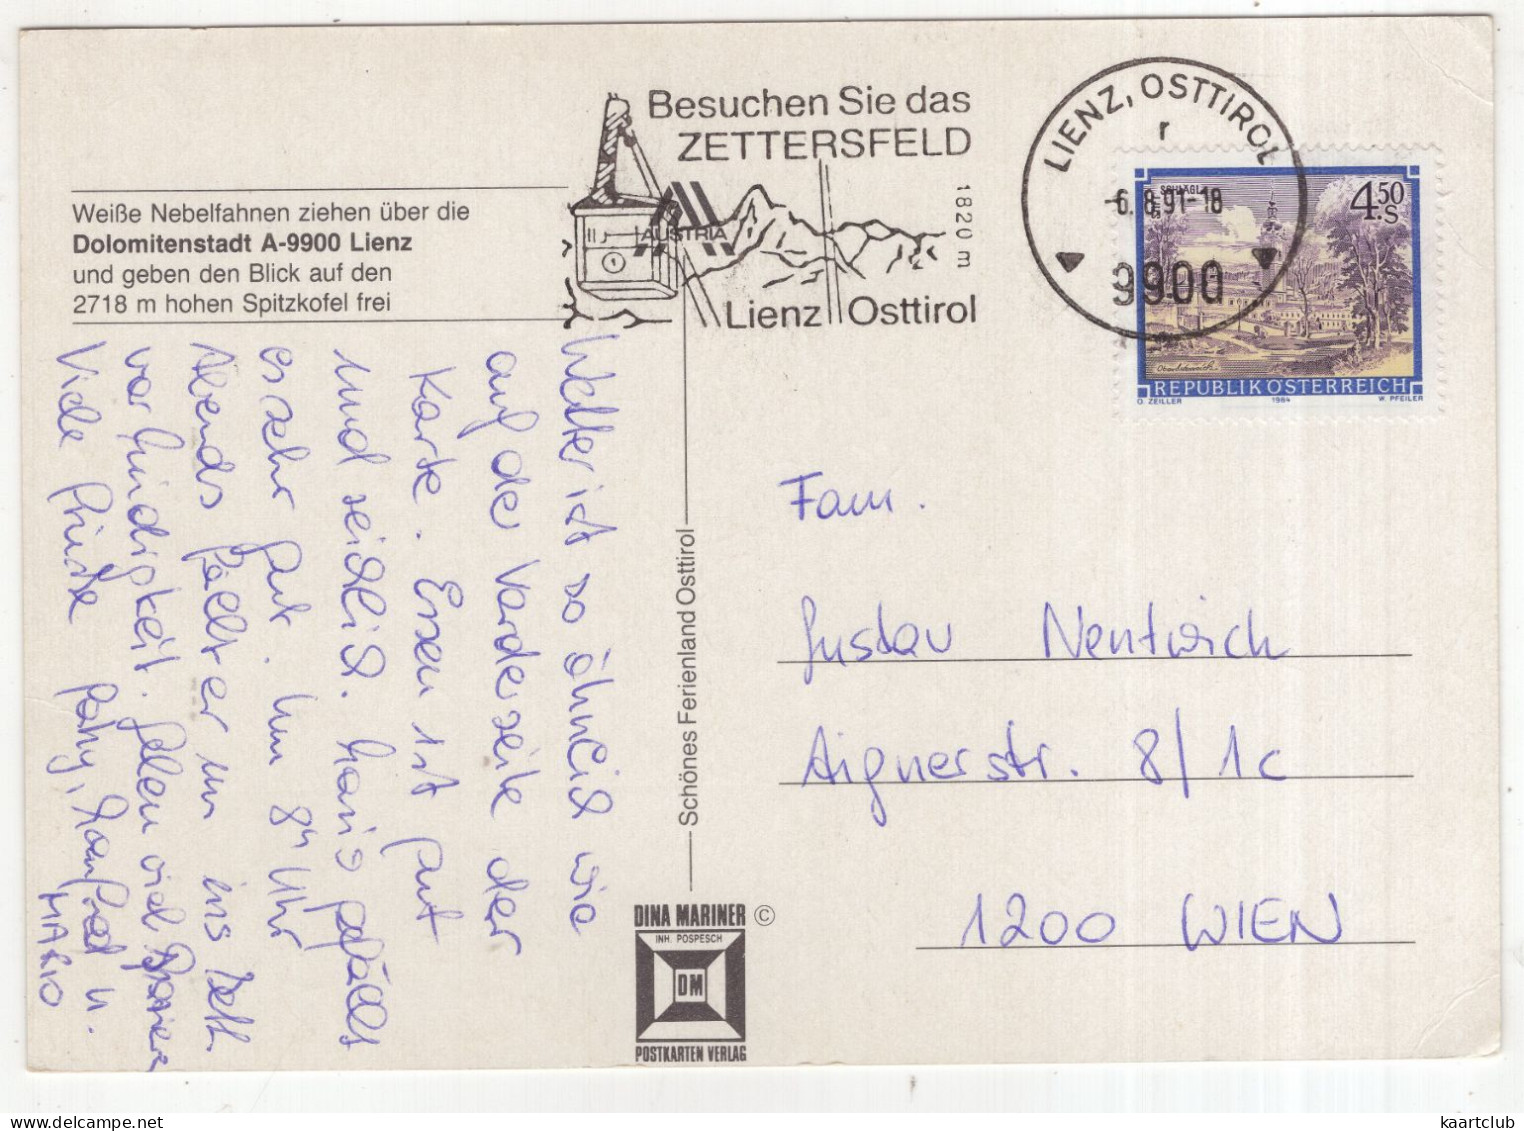 Besuchen Sie das
ZETTERSFELD
1820 m
AUSTRIA
Lienz Osttirol
LIENZ, OSTTIROL
r
-6.8.91-18
9900
SCHLÄGL
4.50
S
REPUBLIK ÖSTERREICH
O. ZEILLER 1984 W. PFEILER
Weiße Nebelfahnen ziehen über die
Dolomitenstadt A-9900 Lienz
und geben den Blick auf den
2718 m hohen Spitzkofel frei
Wetter ist so ähnlich wie
auf der Vorderseite der
Karte. Essen ist gut
und reichlich. Mario gefällt
es sehr gut. Um 8h Uhr
Abends fällt er um ins Bett
vor Müdigkeit. Gehen viel
Viele Grüße Manfred u.
MARIO
Schönes Ferienland Osttirol
DINA MARINER ©
INH. POSPESCH
DM
POSTKARTEN VERLAG
Fam.
Gustav Nentwich
Aignerstr. 8/1c
1200 WIEN
kaartclub